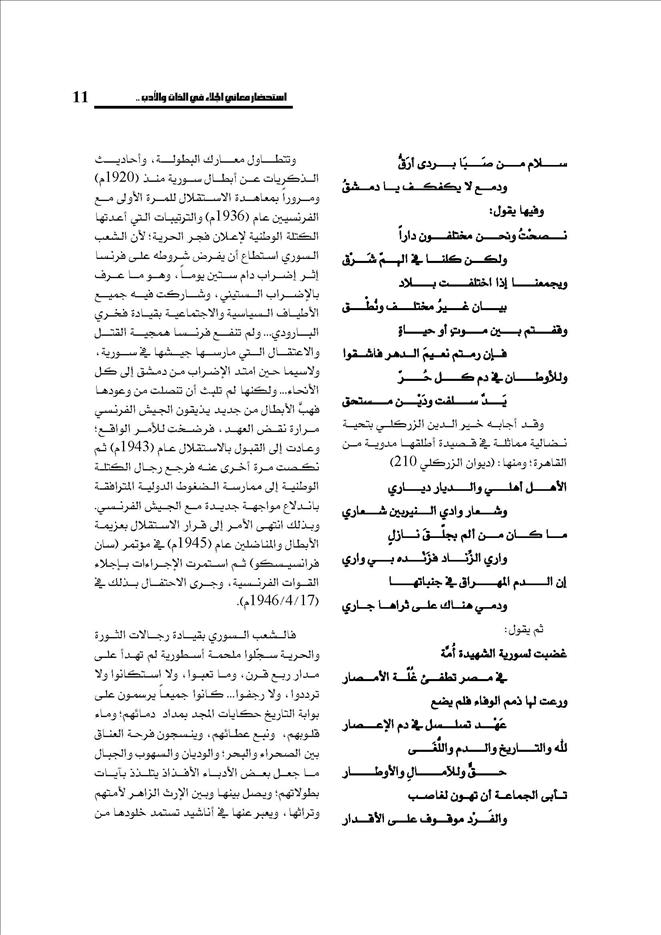 استحضار معاني الجلاء في الذات والأدب .. 11
ســـلام مـــن صَـــبَا بـــردى أرَقُّ
ودمـــع لا يكفكـــف يـــا دمـــشقُ
وفيها يقول:
نـــصحْتُ ونحـــن مختلفـــون داراً
ولكـــن كلنـــا في الهـــمّ شَـــرْق
ويجمعنـــا إذا اختلفـــت بـــلاد
بيـــان غـــيرُ مختلـــف ونُطْـــق
وقفـــتم بـــين مـــوتٍ أو حيـــاةٍ
فـــإن رمـــتم نعيـمَ الـــدهر فاشـــقوا
وللأوطـــان في دم كـــل حُـــرّ
يَـــدٌ ســـلفت ودَيْـــن مـــستحق
وقـد أجابـه خـير الـدين الزركلـي بتحيـة
نـضالية مماثلـة في قـصيدة أطلقهـا مدويـة مـن
القاهرة؛ ومنها: (ديوان الزركلي 210)
الأهـــل أهلـــي والـــديار ديـــاري
وشـــعار وادي الـــنيربين شـــعاري
مـــا كـــان مـــن ألم بجلّـــقَ نـــازلٍ
واري الزِّنـــاد فزَنْـــده بـــي واري
إن الـــدم المهـــراق في جنباتهـــا
ودمـــي هنـــاك علـــى ثراهـــا جـــاري
ثم يقول:
غضبت لسورية الشهيدة أُمَّة
في مـــصر تطفـــئ غُلَّـــة الأمـــصار
ورعت لها ذمم الوفاء فلم يضع
عَهْـــد تسلـــسل في دم الإعـــصار
لله والتـــاريخ والـــدم واللُّغَـــى
حـــقٌّ وللآمـــال والأوطـــار
تـأبى الجماعـة أن تهـون لغاصـب
والفَـــرْد موقـــوف علـــى الأقـــدار
وتتطـــاول معـــارك البطولـــة، وأحاديـــث
الـذكريات عـن أبطـال سـورية منـذ (1920م)
ومـروراً بمعاهـدة الاسـتقلال للمـرة الأولى مـع
الفرنسيين عام (1936م) والترتيبات التي أعدتها
الكتلة الوطنية لإعلان فجر الحرية؛ لأن الشعب
السوري استطاع أن يفرض شروطه على فرنسا
إثـر إضـراب دام سـتين يومـاً، وهـو مـا عـرف
بالإضـراب الـستيني، وشـاركت فيـه جميـع
الأطيـاف الـسياسية والاجتماعيـة بقيـادة فخـري
البـارودي... ولم تنفـع فرنـسا همجيـة القتـل
والاعتقـال الـتي مارسـها جيـشها في سـورية،
ولاسيما حين امتد الإضراب من دمشق إلى كل
الأنحاء... ولكنها لم تلبث أن تنصلت من وعودها
فهبَّ الأبطال من جديد يذيقون الجيش الفرنسي
مـرارة نقـض العهـد، فرضـخت للأمـر الواقـع؛
وعـادت إلى القبـول بالاسـتقلال عـام (1943م) ثـم
نكـصت مـرة أخـرى عنـه فرجـع رجـال الكتلـة
الوطنيـة إلى ممارسـة الـضغوط الدوليـة المترافقـة
بانـدلاع مواجهـة جديـدة مـع الجـيش الفرنـسي.
وبـذلك انتهـى الأمـر إلى قـرار الاسـتقلال بعزيمـة
الأبطال والمناضلين عام (1945م) في مؤتمر (سان
فرانسيـسكو) ثـم اسـتمرت الإجـراءات بـإجلاء
القـوات الفرنـسية، وجـرى الاحتفـال بـذلك في
(1946/4/17م).
فالـشعب الـسوري بقيـادة رجـالات الثـورة
والحريـة سـجّلوا ملحمـة أسـطورية لم تهـدأ علـى
مـدار ربـع قـرن، ومـا تعبـوا، ولا اسـتكانوا ولا
ترددوا، ولا رجفـوا... كـانوا جميعـاً يرسمـون علـى
بوابة التاريخ حكايات المجد بمداد دمـائهم؛ ومـاء
قلـوبهم، ونبـع عطـائهم، وينـسجون فرحـة العنـاق
بين الصحراء والبحر؛ والوديان والسهوب والجبال
مـا جعـل بعـض الأدبـاء الأفـذاذ يتلـذذ بآيـات
بطولاتهم؛ ويصل بينها وبـين الإرث الزاهـر لأمـتهم
وتراثهـا، ويعبر عنها في أناشيد تستمد خلودهـا مـن